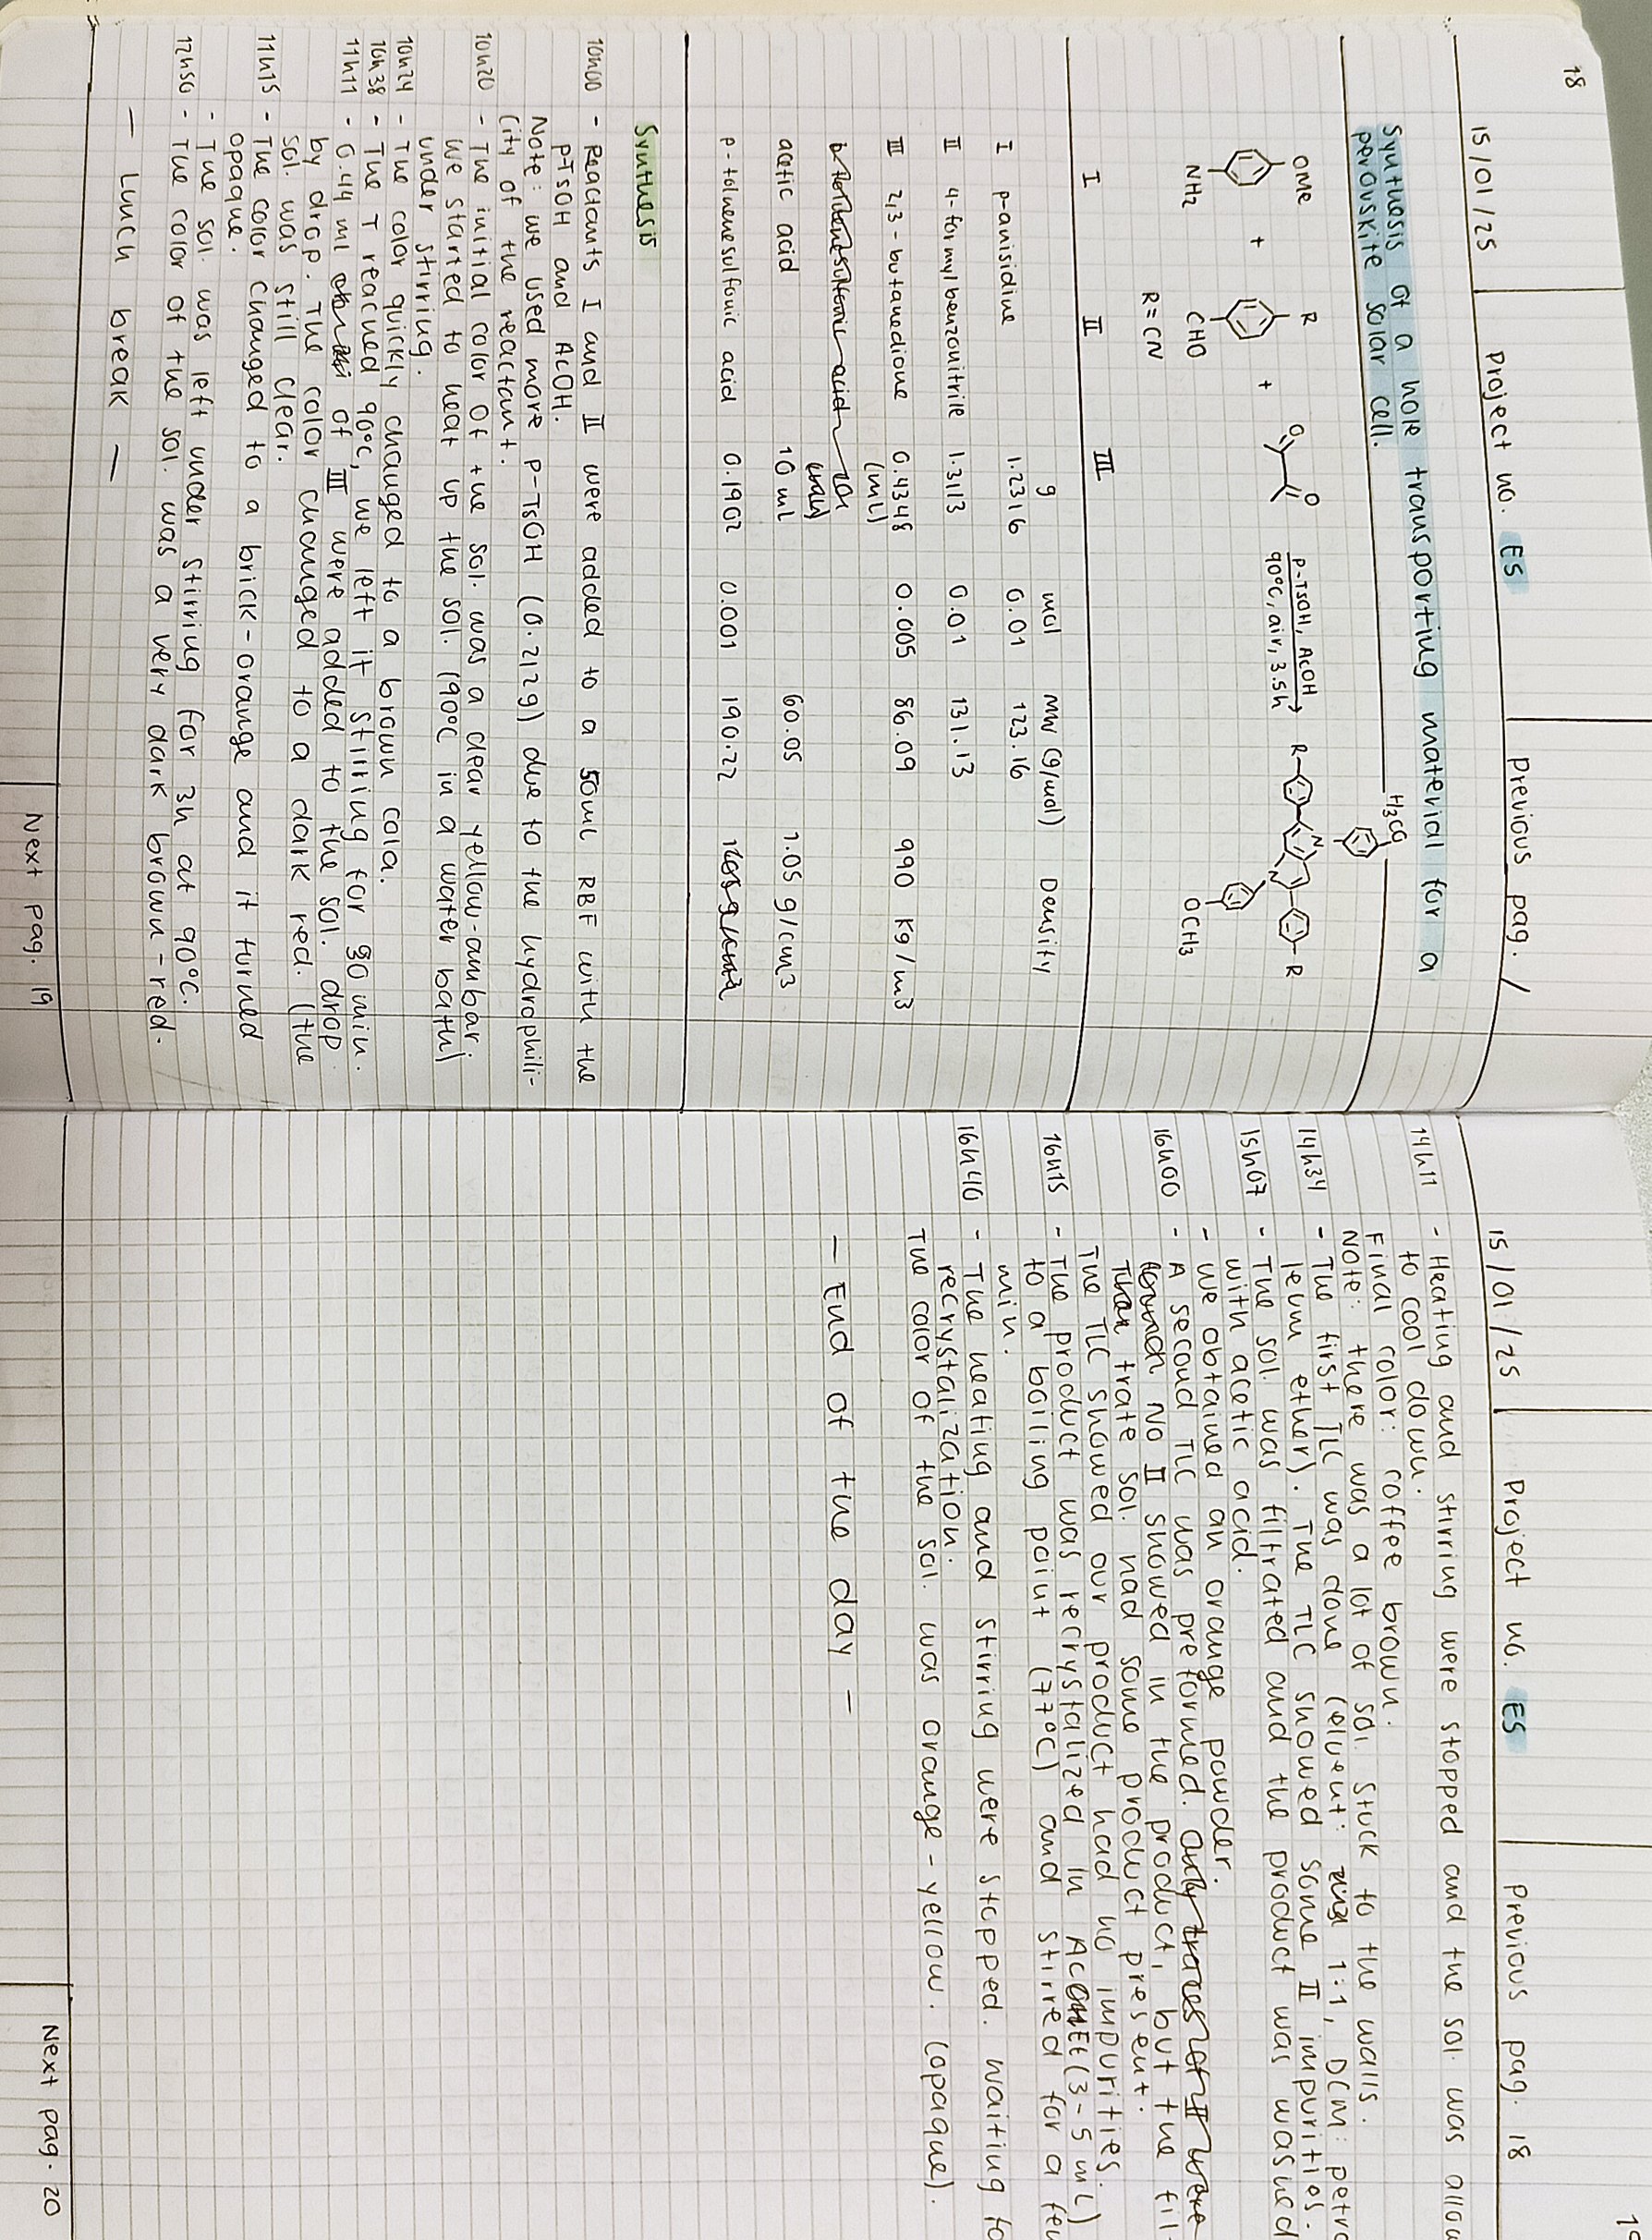 18
15/01/25 Project no. ES Previous pag. /
Synthesis of a hole transporting material for a
perovskite solar cell.
OMe
NH2
+
R
CHO
R=CN
+
O
O
p-TsOH, AcOH
90°C, air, 3.5h
H3CO
R
N
N
R
OCH3
I II III
g mol MW (g/mol) Density
I p-anisidine 1.2316 0.01 123.16
II 4-formylbenzonitrile 1.3113 0.01 131.13
III 2,3-butanedione 0.4348 0.005 86.09 990 Kg/m3
(mL)
acetic acid 10 mL 60.05 1.05 g/cm3
p-toluenesulfonic acid 0.1902 0.001 190.22
Synthesis
10h00 - Reactants I and II were added to a 50mL RBF with the
pTsOH and AcOH.
Note: we used more p-TsOH (0.2122g) due to the hydrophili-
city of the reactant.
10h20 - The initial color of the sol. was a clear yellow-ambar.
we started to heat up the sol. (90°C in a water bath)
under stirring.
10h24 - The color quickly changed to a brown cola.
10h38 - The T reached 90°C, we left it stirring for 30 min.
11h11 - 0.44 ml of III were added to the sol. drop
by drop. The color changed to a dark red. (the
sol. was still clear.
11h15 - The color changed to a brick-orange and it turned
opaque.
- The sol. was left under stirring for 3h at 90°C.
12h50 - The color of the sol. was a very dark brown-red.
— Lunch break —
Next pag. 19
15/01/25 Project no. ES Previous pag. 18
14h11 - Heating and stirring were stopped and the sol. was allow
to cool down.
Final color: coffee brown.
Note: there was a lot of sol. stuck to the walls.
14h34 - The first TLC was done (eluent: 1:1, DCM: petro
leum ether). The TLC showed some II impurities.
15h07 - The sol. was filtrated and the product was washed
with acetic acid.
- we obtained an orange powder.
16h00 - A second TLC was preformed. only traces of II were
No II showed in the product, but the fil
trate sol. had some product present.
The TLC showed our product had no impurities.
16h15 - The product was recrystalized in AcOEt (3-5 mL)
to a boiling point (77°C) and stirred for a few
min.
16h40 - The heating and stirring were stopped. waiting fo
recrystalization.
The color of the sol. was orange-yellow. (opaque).
— End of the day —
Next pag. 20